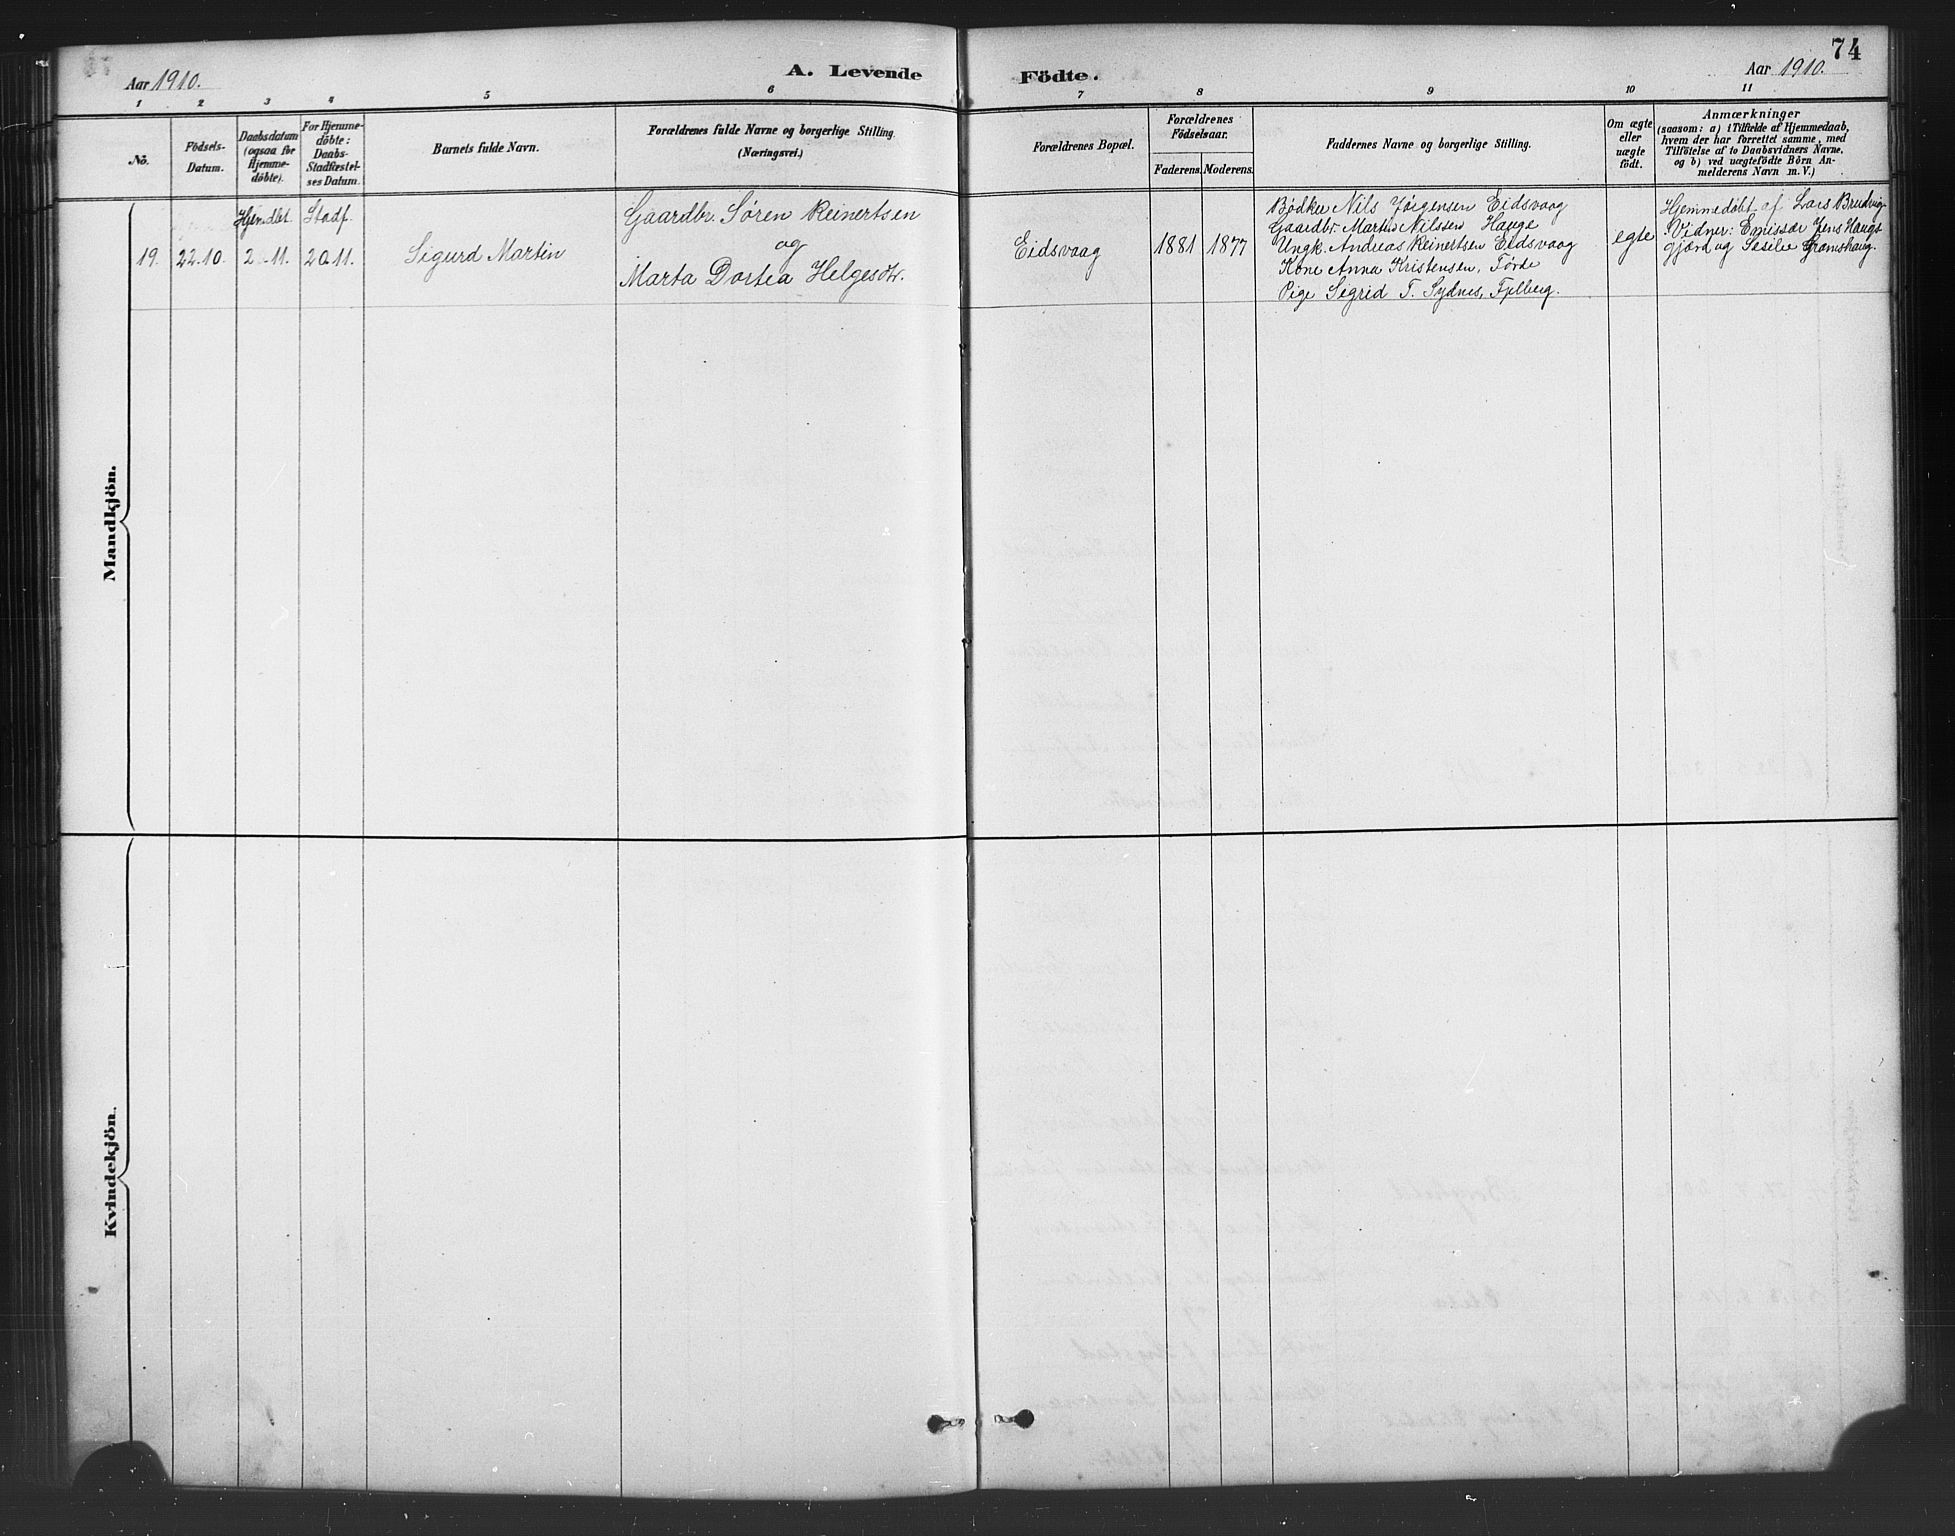 74
Aar 1910.
A. Levende Födte.
Aar 1910.
1 2 3 4 5 6 7 8 9 10 11
No.
Födsels-
Datum.
Daabsdatum
(ogsaa for
Hjemme-
döbte).
For Hjemme-
döbte:
Daabs-
Stadfæstel-
ses Datum.
Barnets fulde Navn.
Forældrenes fulde Navne og borgerlige Stilling.
(Næringsvei.)
Forældrenes Bopæl.
Forældrenes
Födselsaar.
Faderens. Moderens.
Faddernes Navne og borgerlige Stilling.
Om ægte
eller
uægte
födt.
Anmærkninger
(saasom: a) i Tilfælde af Hjemmedaab,
hvem der har forrettet samme, med
Tilföielse af to Daabsvidners Navne,
og b) ved uægtefödte Börn An-
melderens Navn m. V.)
Mandkjön.
19.
22.10.
Hjemdbt.
2.11.
Stadf.
20.11.
Sigurd Martin
Gaardbr. Søren Reinertsen
og
Marta Dortea Helgesdtr.
Eidsvaag
1881
1877
Bødker Nils Jørgensen Eidsvaag
Gaardbr. Martin Nilssen Hauge
Ungk. Andreas Reinertsen Eidsvaag
Kone Anna Kristensen, Førde
Pige Segrid T. Sydnes, Fjelberg.
egte
Hjemmedøbt af Lars Brudvig
Vidner: Emissær Jens Haugs
gjærd og Sesilie Gramshaug.
Kvindekjön.